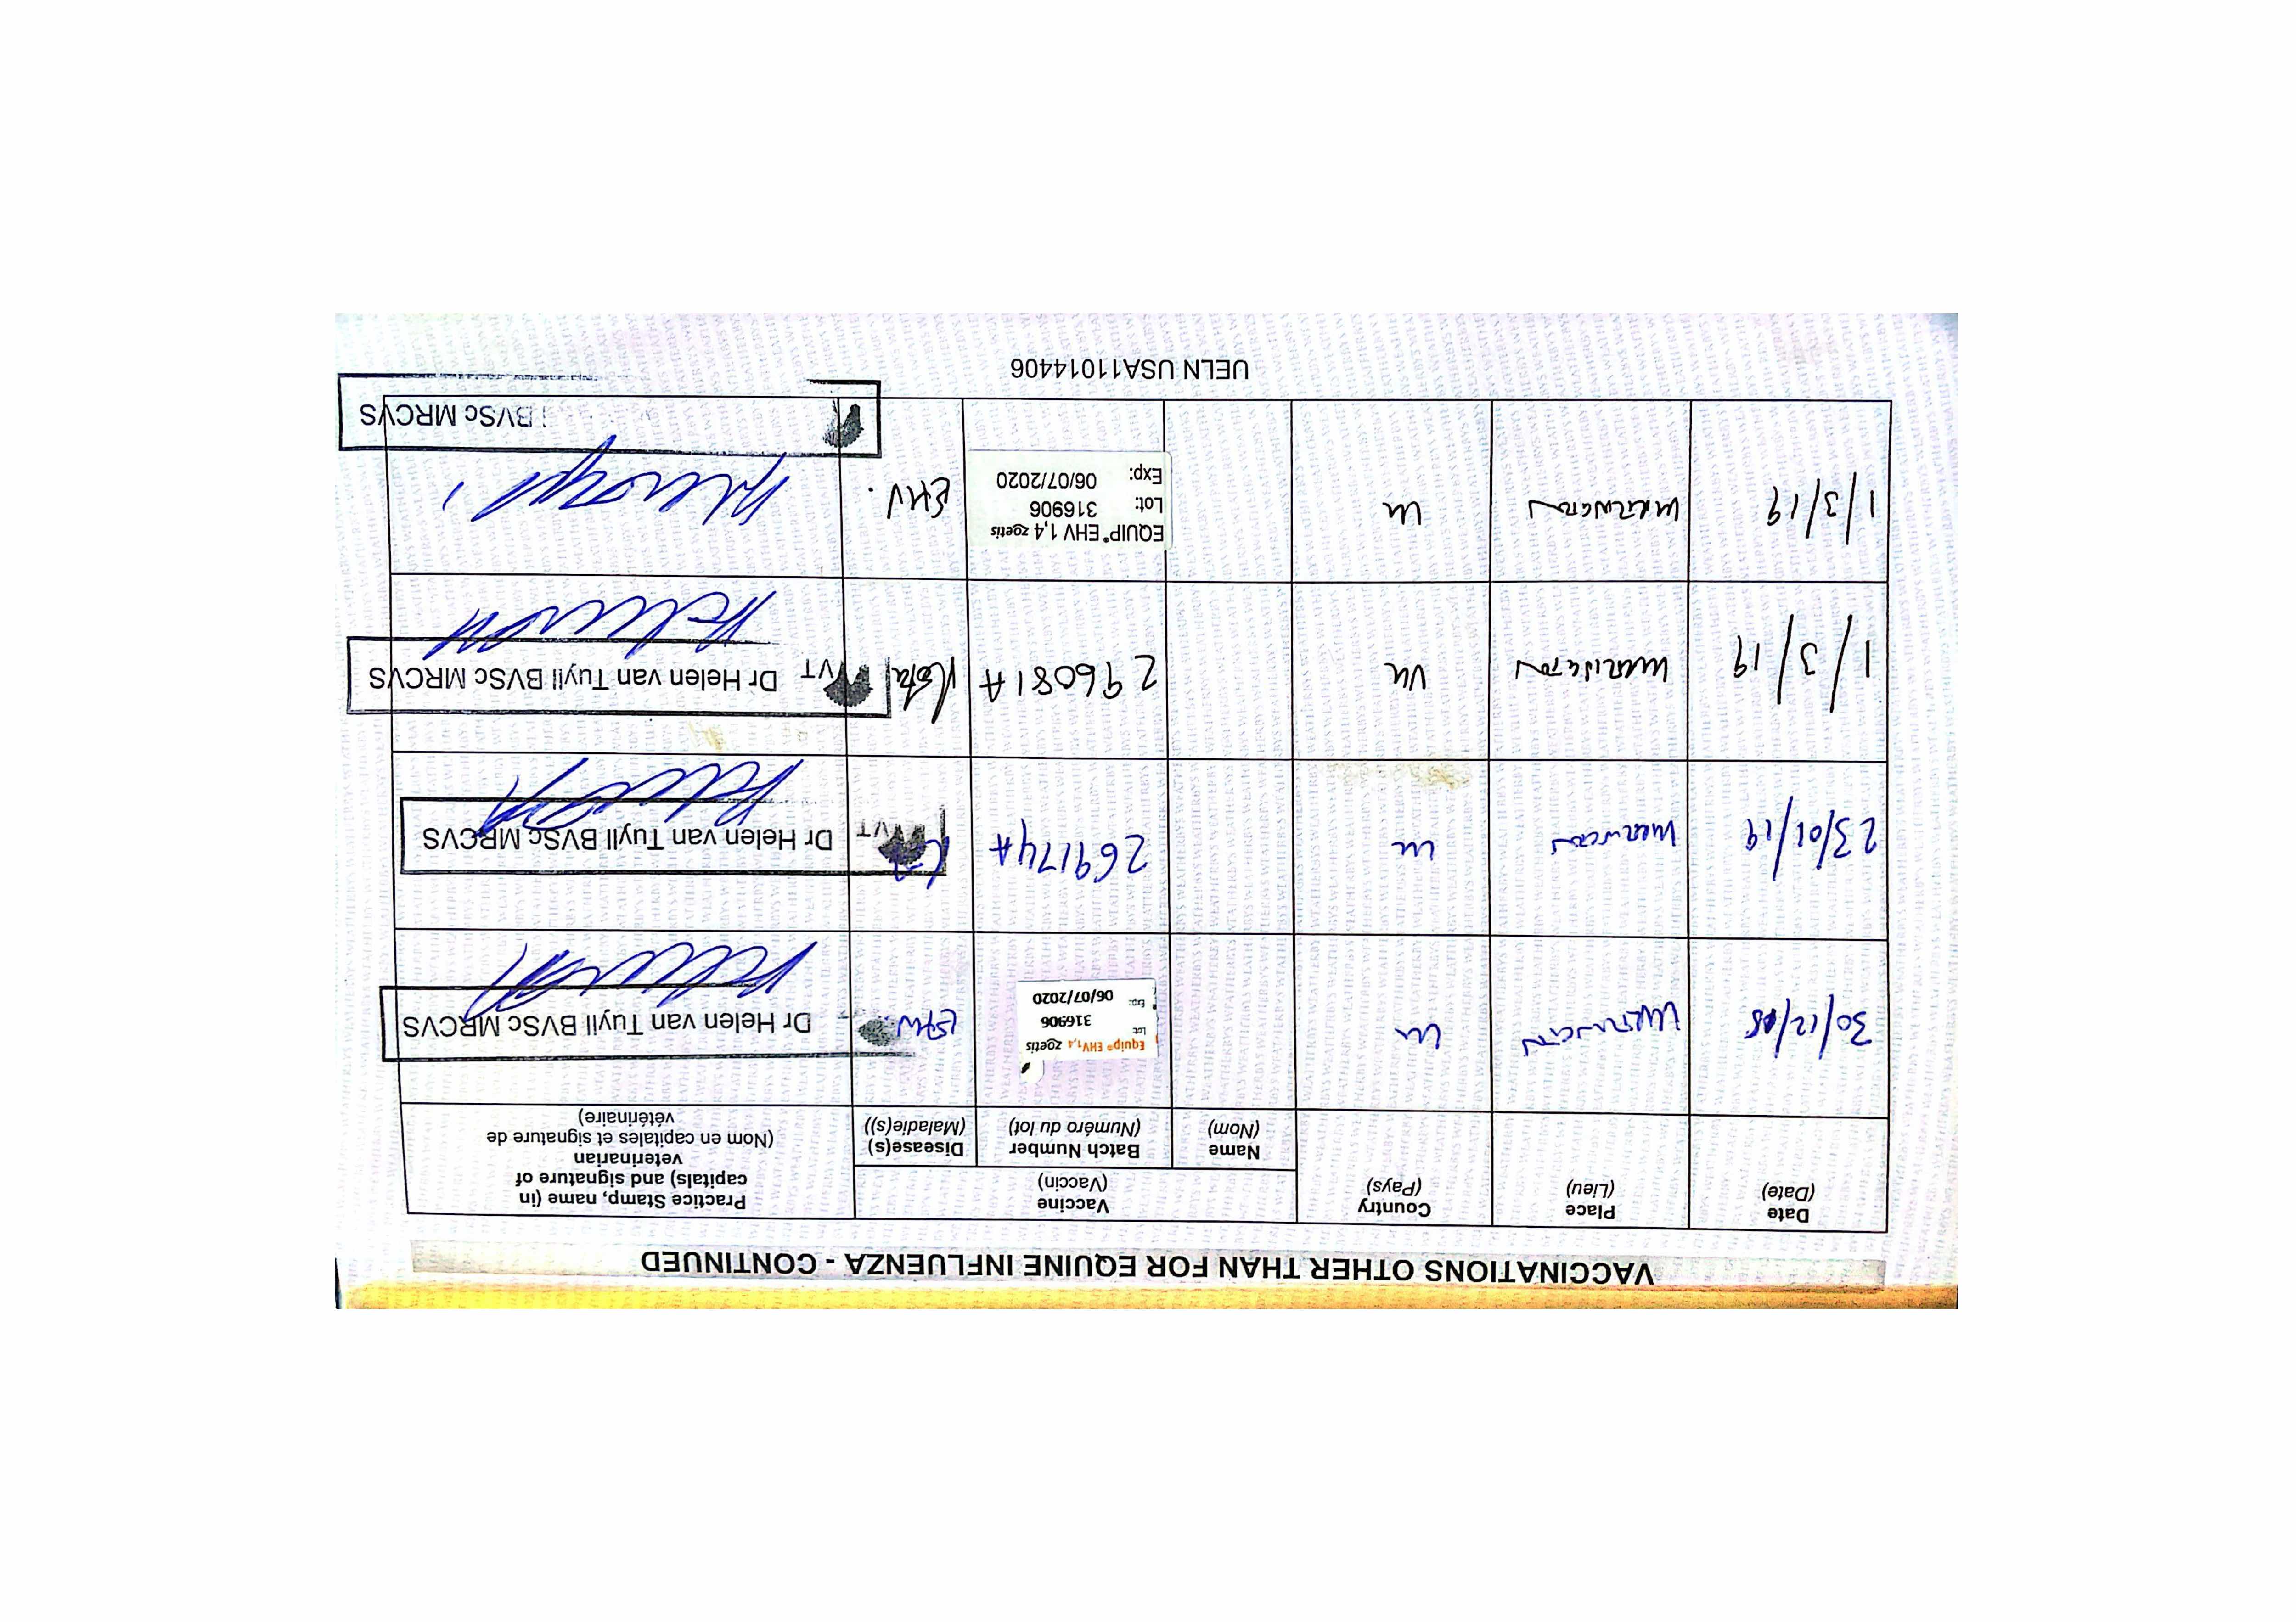 VACCINATIONS OTHER THAN FOR EQUINE INFLUENZA - CONTINUED
Date
(Date)
Place
(Lieu)
Country
(Pays)
Vaccine
(Vaccin)
Name
(Nom)
Batch Number
(Numéro du lot)
Disease(s)
(Maladie(s))
Practice Stamp, name (in
capitals) and signature of
veterinarian
(Nom en capitales et signature de
vétérinaire)
30/12/18
UK
Equip® EHV1,4 zoetis
Lot: 316906
Exp: 06/07/2020
EHV
Dr Helen van Tuyll BVSc MRCVS
23/01/19
UK
269174A
VT
Dr Helen van Tuyll BVSc MRCVS
1/3/19
UK
296081A
Rota
VT
Dr Helen van Tuyll BVSc MRCVS
1/3/19
UK
EQUIP® EHV 1,4 zoetis
Lot: 316906
Exp: 06/07/2020
EHV.
BVSc MRCVS
UELN USA11014406